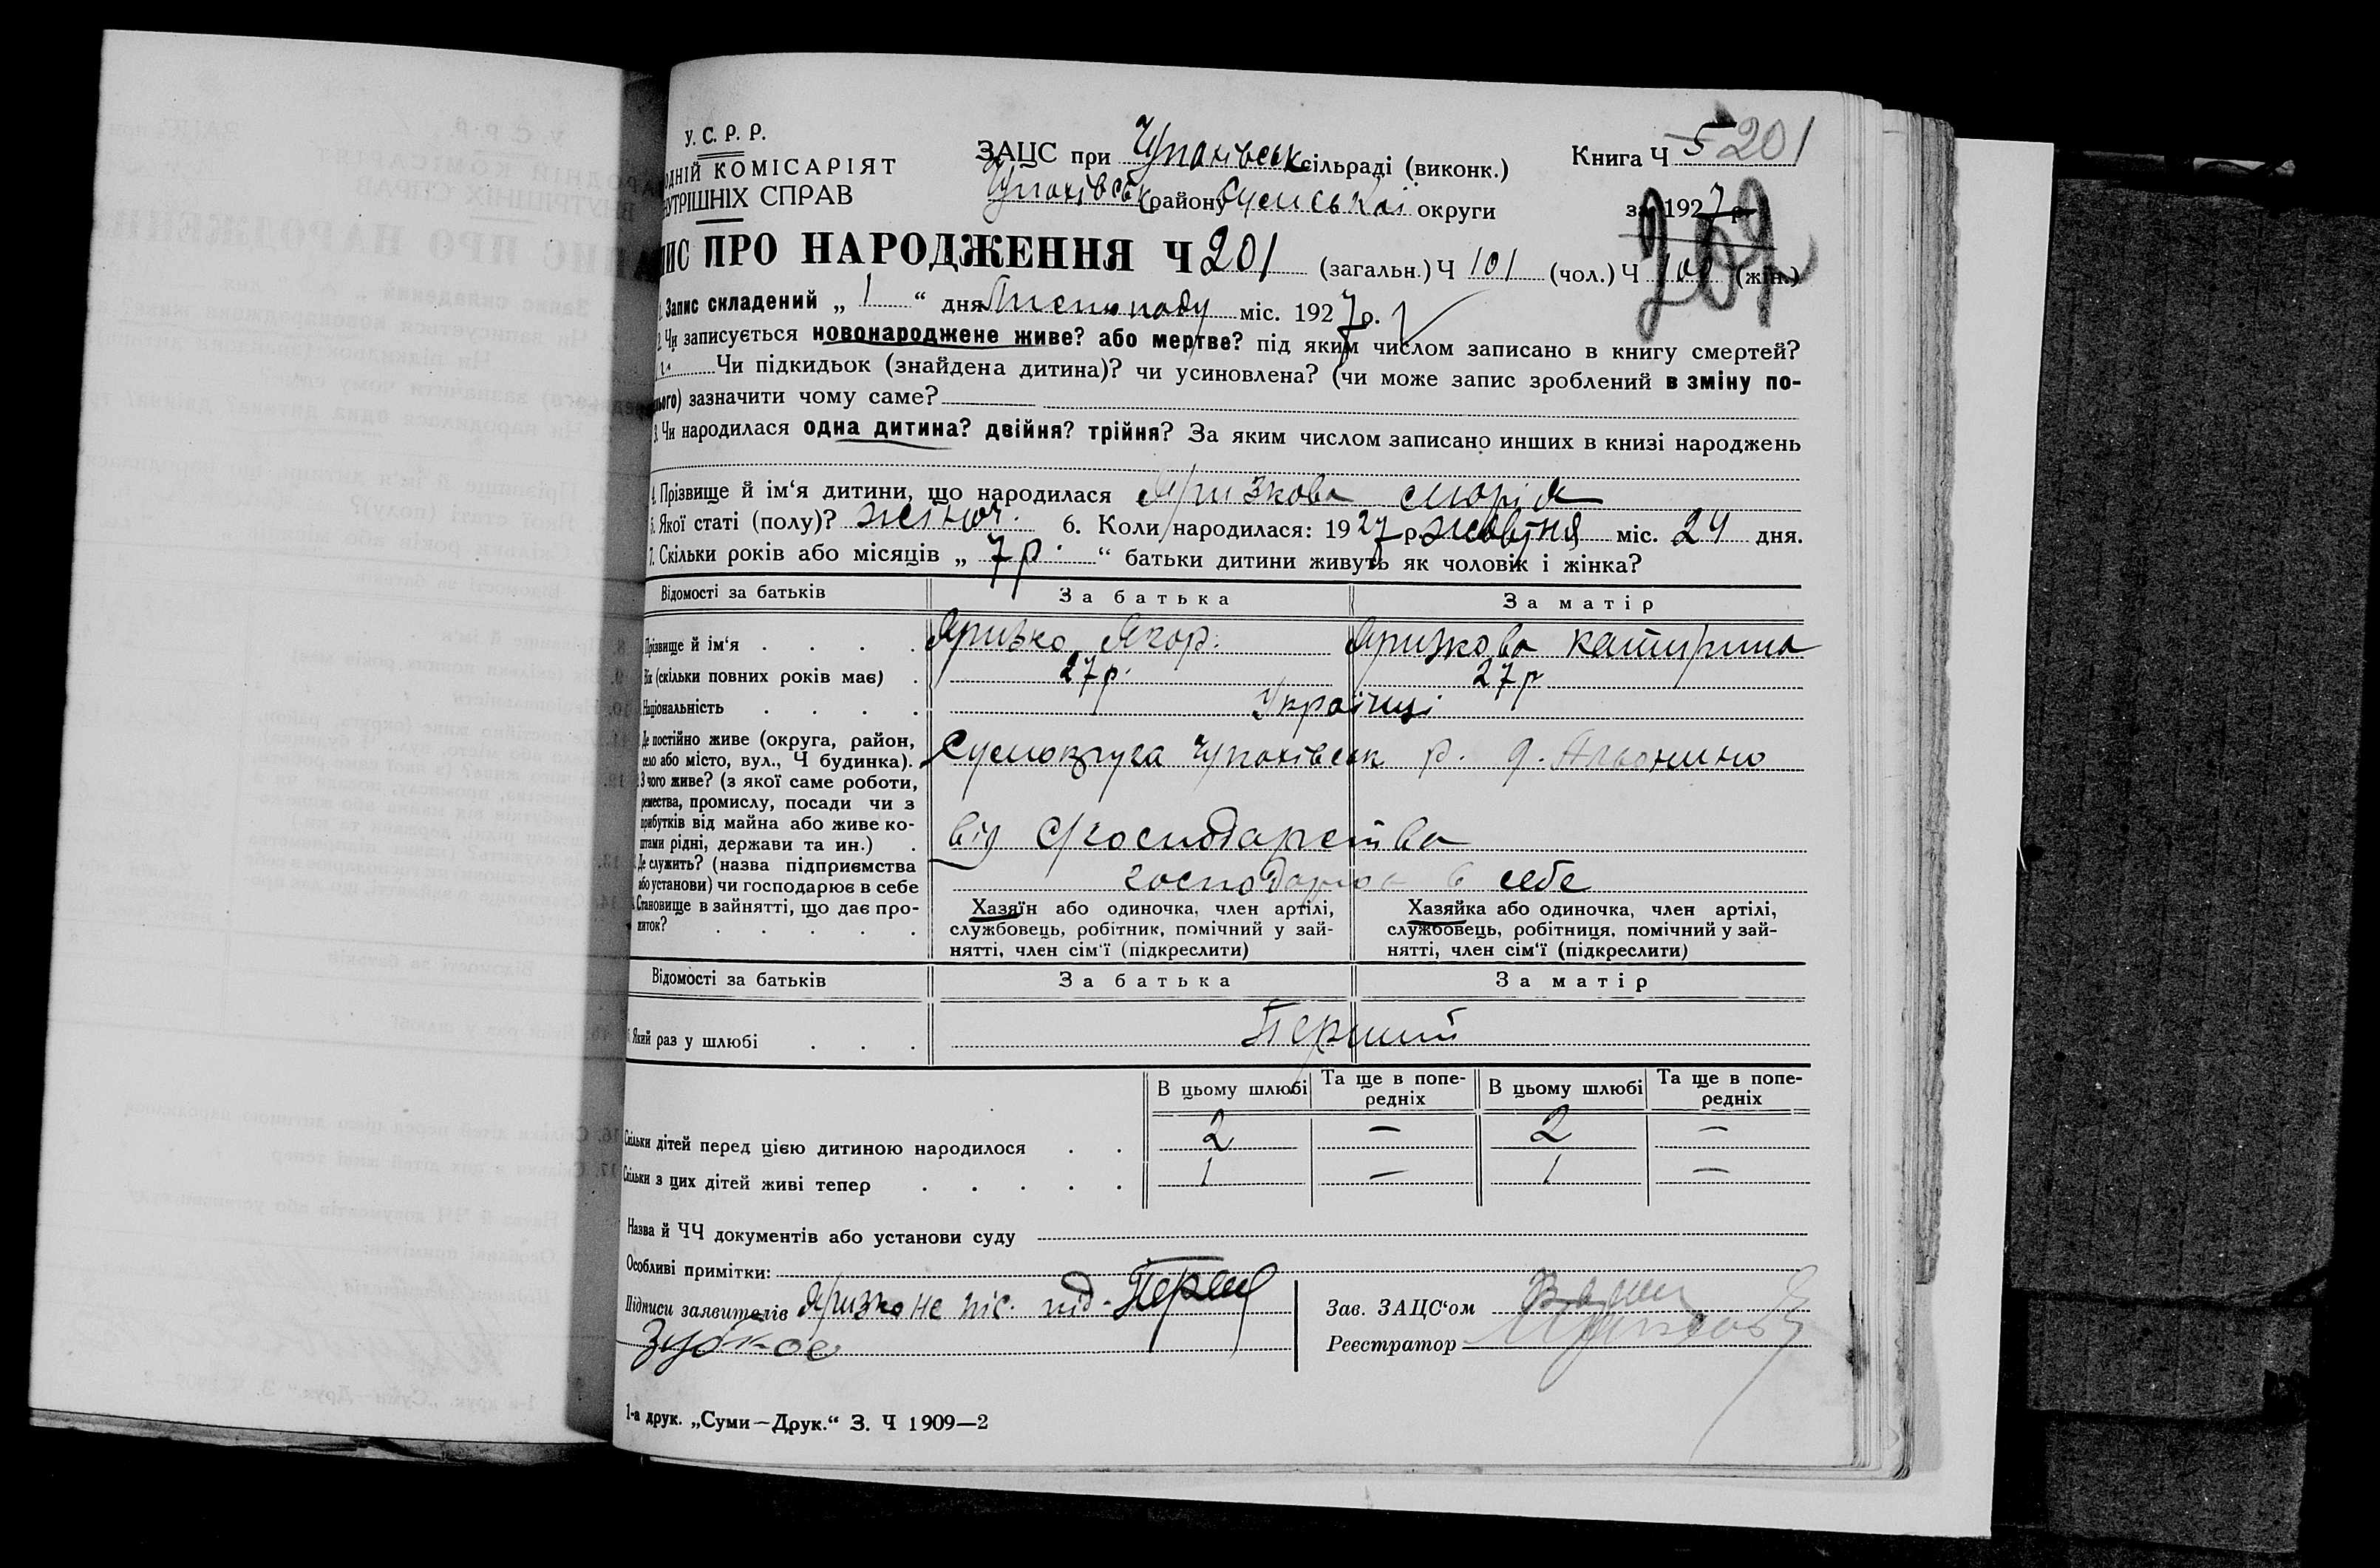 У. С. Р. Р.
ОДНІЙ КОМІСАРІЯТ
УТРІШНІХ СПРАВ
ЗАЦС при Чупахівськ сільраді (виконк.)
Чупахівськ району Сумської округи
Книга Ч 5 201
за 1927 р.
269
ИС ПРО НАРОДЖЕННЯ Ч 201 (загальн.) Ч 101 (чол.) Ч 100 (жін.)
1. Запис складений „ 1 “ дня Листопаду міс. 1927 р.
2. Чи записується новонароджене живе? або мертве? під яким числом записано в книгу смертей?
Чи підкидьок (знайдена дитина)? чи усиновлена? (чи може запис зроблений в зміну по-
ього) зазначити чому саме?
3. Чи народилася одна дитина? двійня? трійня? За яким числом записано инших в книзі народжень
4. Прізвище й ім‘я дитини, що народилася Яризкова Марія
5. Якої статі (полу)? жіноч. 6. Коли народилася: 1927 р. жовтня міс. 24 дня.
7. Скільки років або місяців „ 7 р. “ батьки дитини живуть як чоловік і жінка?
Відомості за батьків За батька За матір
Прізвище й ім‘я Яризко Ягор. Яризкова Катирина
Вік (скільки повних років має) 27 р. 27 р
Національність Українці
Де постійно живе (округа, район,
село або місто, вул., Ч будинка). Сумокруга Чупахівськ р.
З чого живе? (з якої саме роботи,
ремества, промислу, посади чи з
прибутків від майна або живе ко-
штами рідні, держави та ин.) від С/господарства
Де служить? (назва підприємства
або установи) чи господарює в себе в себе
Становище в зайнятті, що дає про-
житок?
Хазяїн або одиночка, член артілі,
службовець, робітник, помічний у зай-
нятті, член сім‘ї (підкреслити)
Хазяйка або одиночка, член артілі,
службовець, робітниця, помічний у зай-
нятті, член сім‘ї (підкреслити)
Відомості за батьків За батька За матір
Який раз у шлюбі Перший
В цьому шлюбі Та ще в попе-
редніх В цьому шлюбі Та ще в попе-
редніх
Скільки дітей перед цією дитиною народилося 2 — 2 —
Скільки з цих дітей живі тепер 1 — 1 —
Назва й ЧЧ документів або установи суду
Особливі примітки:
Підписи заявителів Яризко не піс. під.
Зав. ЗАЦС‘ом
Реєстратор
1-а друк. „Суми—Друк.“ З. Ч 1909—2